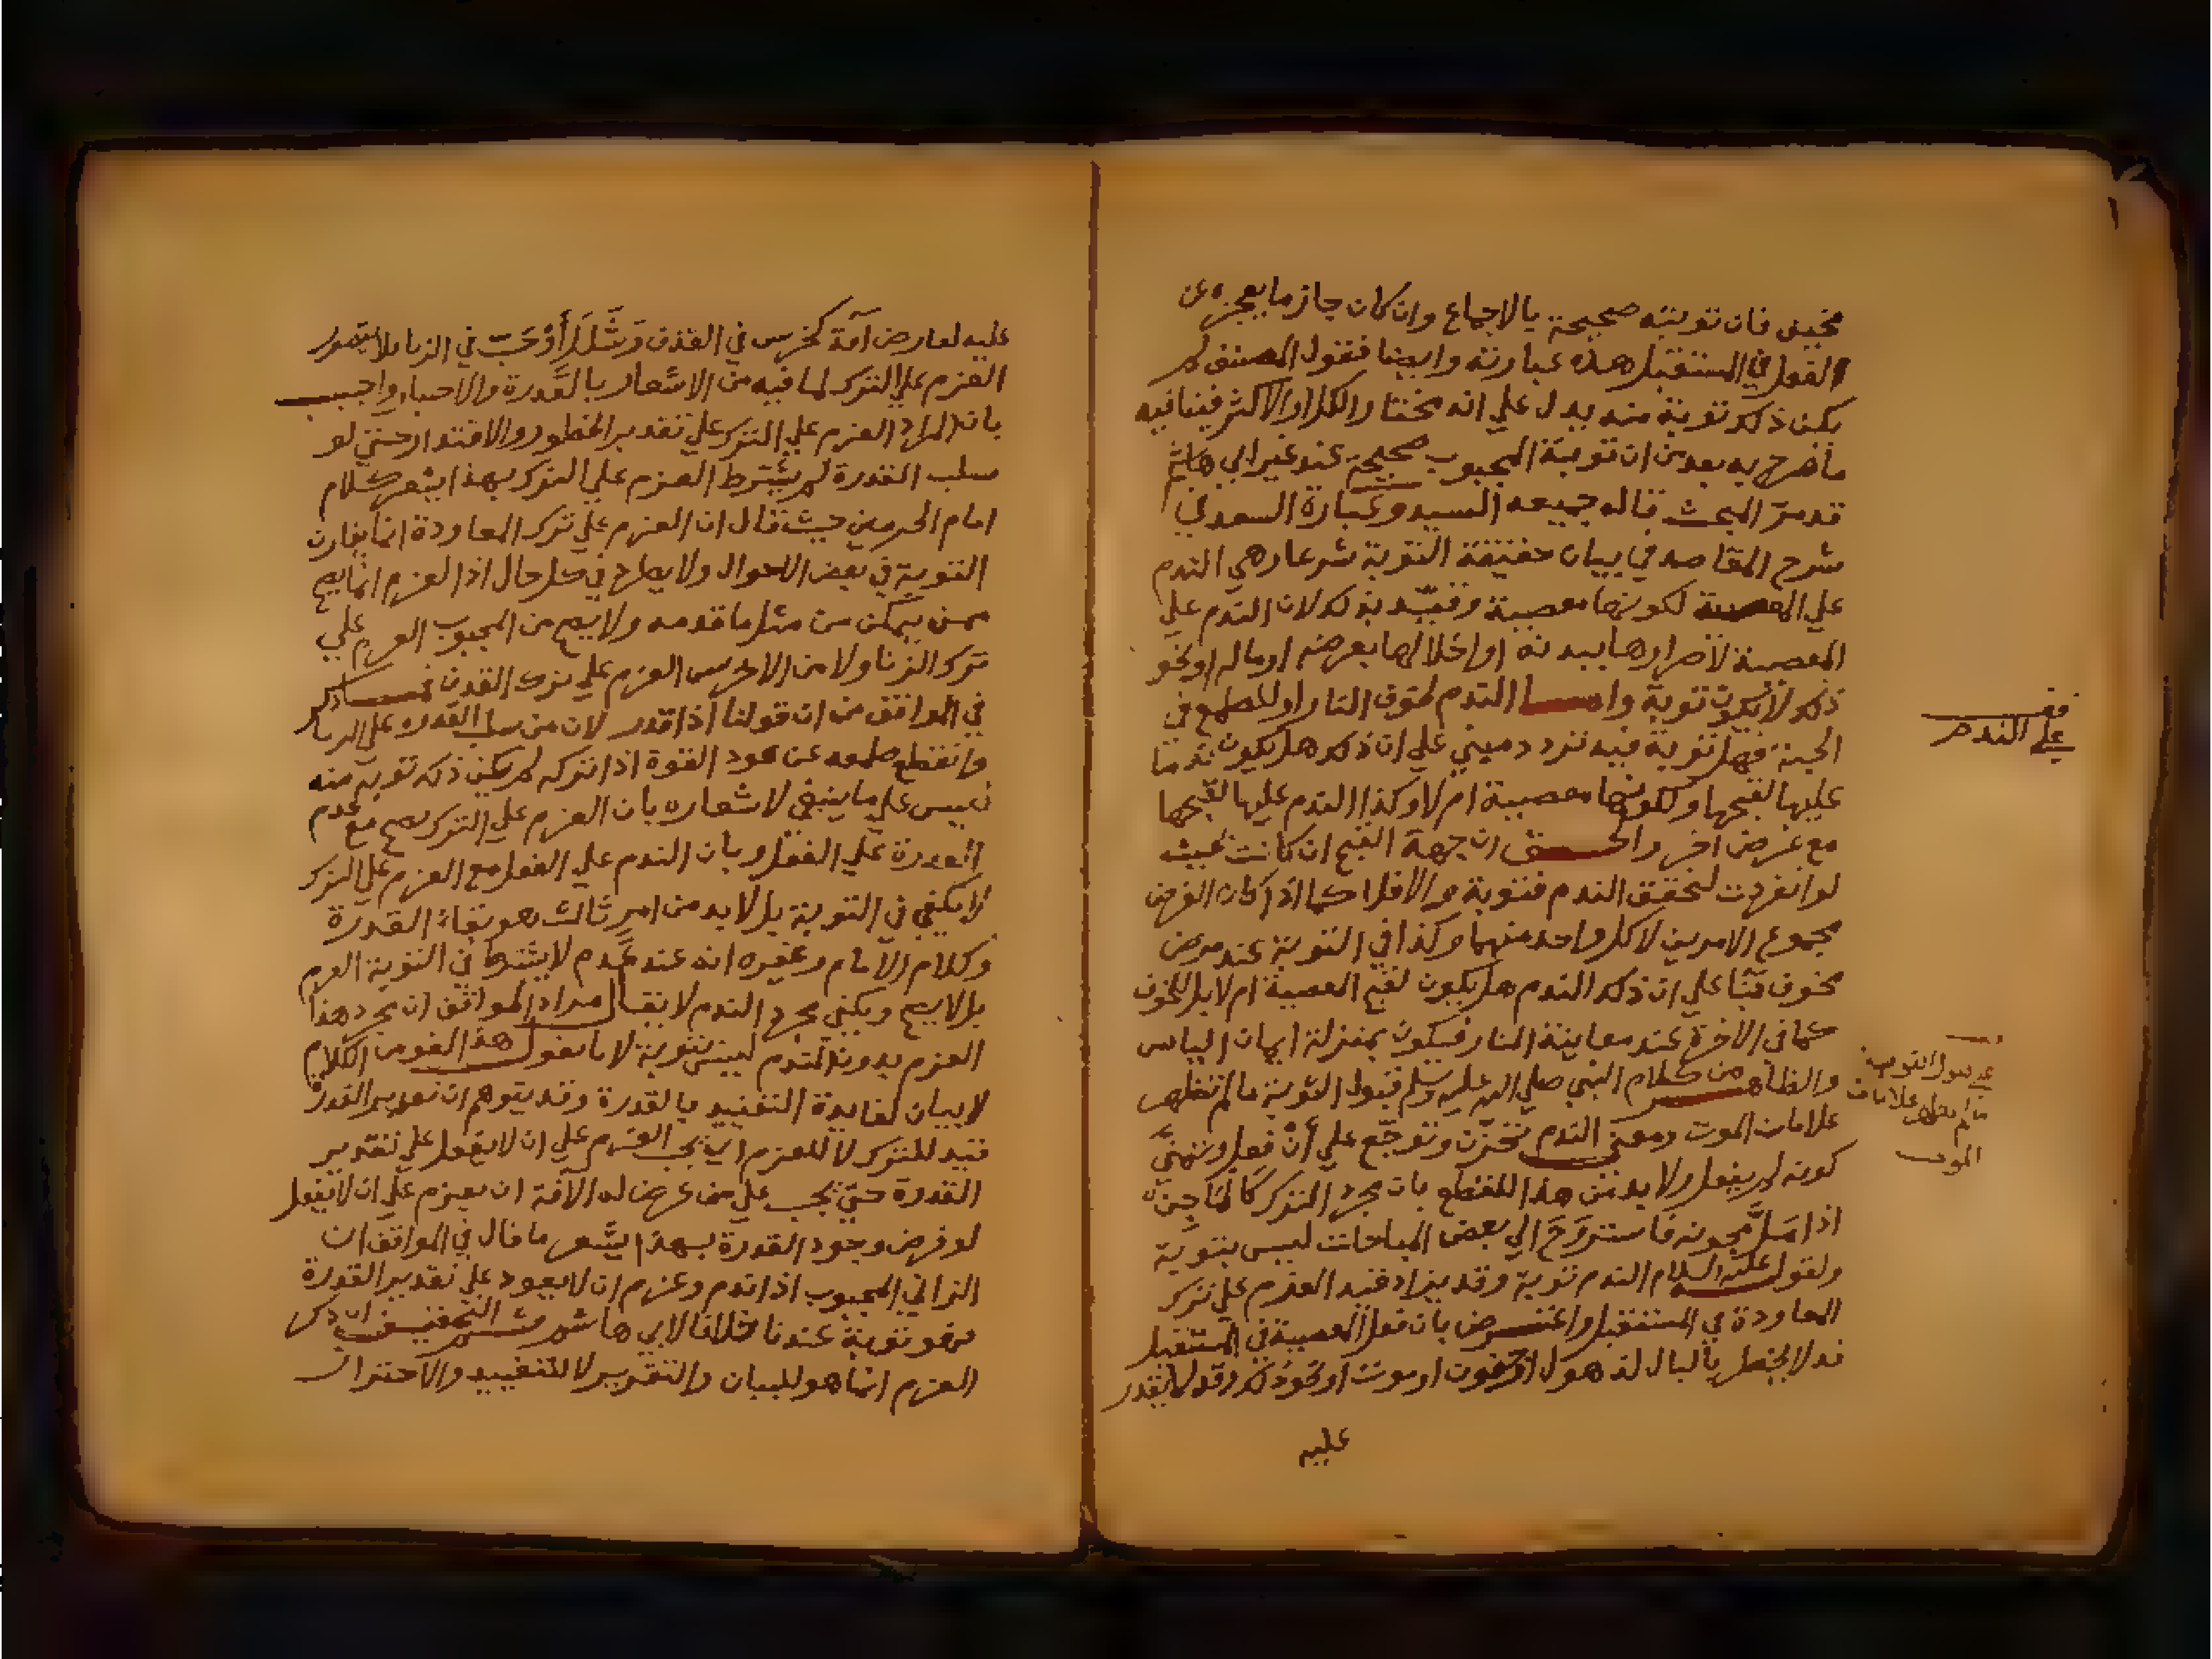 مخيف فان توبته صحيحة بالاجماع وان كان جازما بعجزه عن
الفعل في المستقبل هذه عبارته وايضا فقول المصنف لم
يكن ذلك توبة منه يدل علي انه مختار الكل او الاكثر فينافيه
ما صرح به بعد من ان توبة المجبوب صحيحة عند غير ابي هاشم
قد مر المبحث قاله جميعه السيد وعبارة السعد في
شرح المقاصد في بيان حقيقة التوبة شرعا وهي الندم
علي المعصية لكونها معصية وقيد بذلك لان الندم علي
المعصية لاضرارها ببدنه او اخلالها بعرضه او ماله او نحو
ذلك لا يكون توبة واما الندم لخوف النار او للطمع في
الجنة فهل توبة فيه تردد مبني علي ان ذلك هل يكون ندما
عليها لقبحها ولكونها معصية ام لا وكذا الندم عليها لقبحها
مع غرض اخر والحق ان جهة القبح ان كانت بحيث
لو انفردت لتحقق الندم فتوبة والا فلا كما اذا كان الغرض
مجموع الامرين لا كل واحد منهما وكذا في التوبة عند مرض
مخوف بنا علي ان ذلك الندم هل يكون لقبح المعصية ام لا بل للخوف
كما في الاخرة عند معاينة النار فيكون بمنزلة ايمان الياس
والظاهر من كلام النبي صلي الله عليه وسلم قبول التوبة ما لم تظهر
علامات الموت ومعني الندم تحزن وتوجع علي أن فعل وتمني
كونه لم يفعل ولا بد من هذا للقطع بان مجرد الترك كالماجن
اذا مل مجونه فاستروح الي بعض المباحات ليس بتوبة
ولقوله عليه السلام الندم توبة وقد يزاد قيد العزم علي ترك
المعاودة في المستقبل واعترض بان فعل المعصية في المستقبل
قد لا يخطر بالبال لذهول او جنون او موت او نحو ذلك وقد لا يقدر
عليه
علي الندم
قبول التوبة
ما لم يظهر علامات
الموت
عليه لعارض آفة كخرس في القذف وشلل أو جب في الزنا فلا يتصور
العزم علي الترك لما فيه من الاشعار بالقدرة والاختيار واجيب
بان المراد العزم علي الترك علي تقدير الخطور والاقتدار حتي لو
سلب القدرة لم يشترط العزم علي الترك بهذا يشعر كلام
امام الحرمين حيث قال ان العزم علي ترك المعاودة انما يقارن
التوبة في بعض الاحوال ولا يطرد في كل حال اذ العزم انما يصح
ممن يتمكن من مثل ما قدمه ولا يصح من المجبوب العزم علي
ترك الزنا ولا من الاخرس العزم علي ترك القذف فما ذكر
في المواقف من ان قولنا اذا قدر لان من سلب القدرة علي الزنا
وانقطع طمعه عن عود القوة اذا تركه لم يكن ذلك توبة منه
ليس علي ما ينبغي لاشعاره بان العزم علي الترك يصح مع عدم
القدرة علي الفعل وبان الندم علي الفعل مع العزم علي الترك
لا يكفي في التوبة بل لا بد من امر ثالث هو بقاء القدرة
وكلام الامام وغيره انه عند عدم لا يشترط في التوبة العزم
بل لا يصح ويكفي مجرد الندم لا يقال مراد المواقف ان مجرد هذا
العزم بدون الندم ليس بتوبة لانا نقول هذا لغو من الكلام
لا بيان لفايدة التقييد بالقدرة وقد يتوهم ان تقدير القدرة
قيد للترك لا للعزم اي يجب العزم علي ان لا يفعل علي تقدير
القدرة حتي يجب علي من عرض له الآفة ان يعزم علي ان لا يفعل
لو فرض وجود القدرة بهذا يشعر ما قال في المواقف ان
الزاني المجبوب اذا ندم وعزم ان لا يعود علي تقدير القدرة
فهو توبة عندنا خلافا لابي هاشم ثم التحقيق ان ذكر
العزم انما هو للبيان والتقرير لا للتقييد والاحتراز